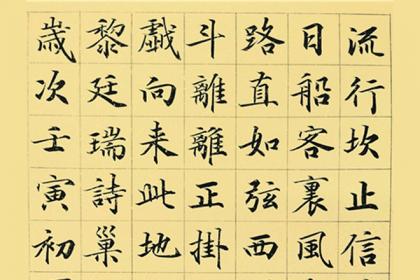 流行坎止信
日船客裏風
路直如弦西
斗離離正掛
戲向来此地
黎廷瑞詩巢
歲次壬寅初